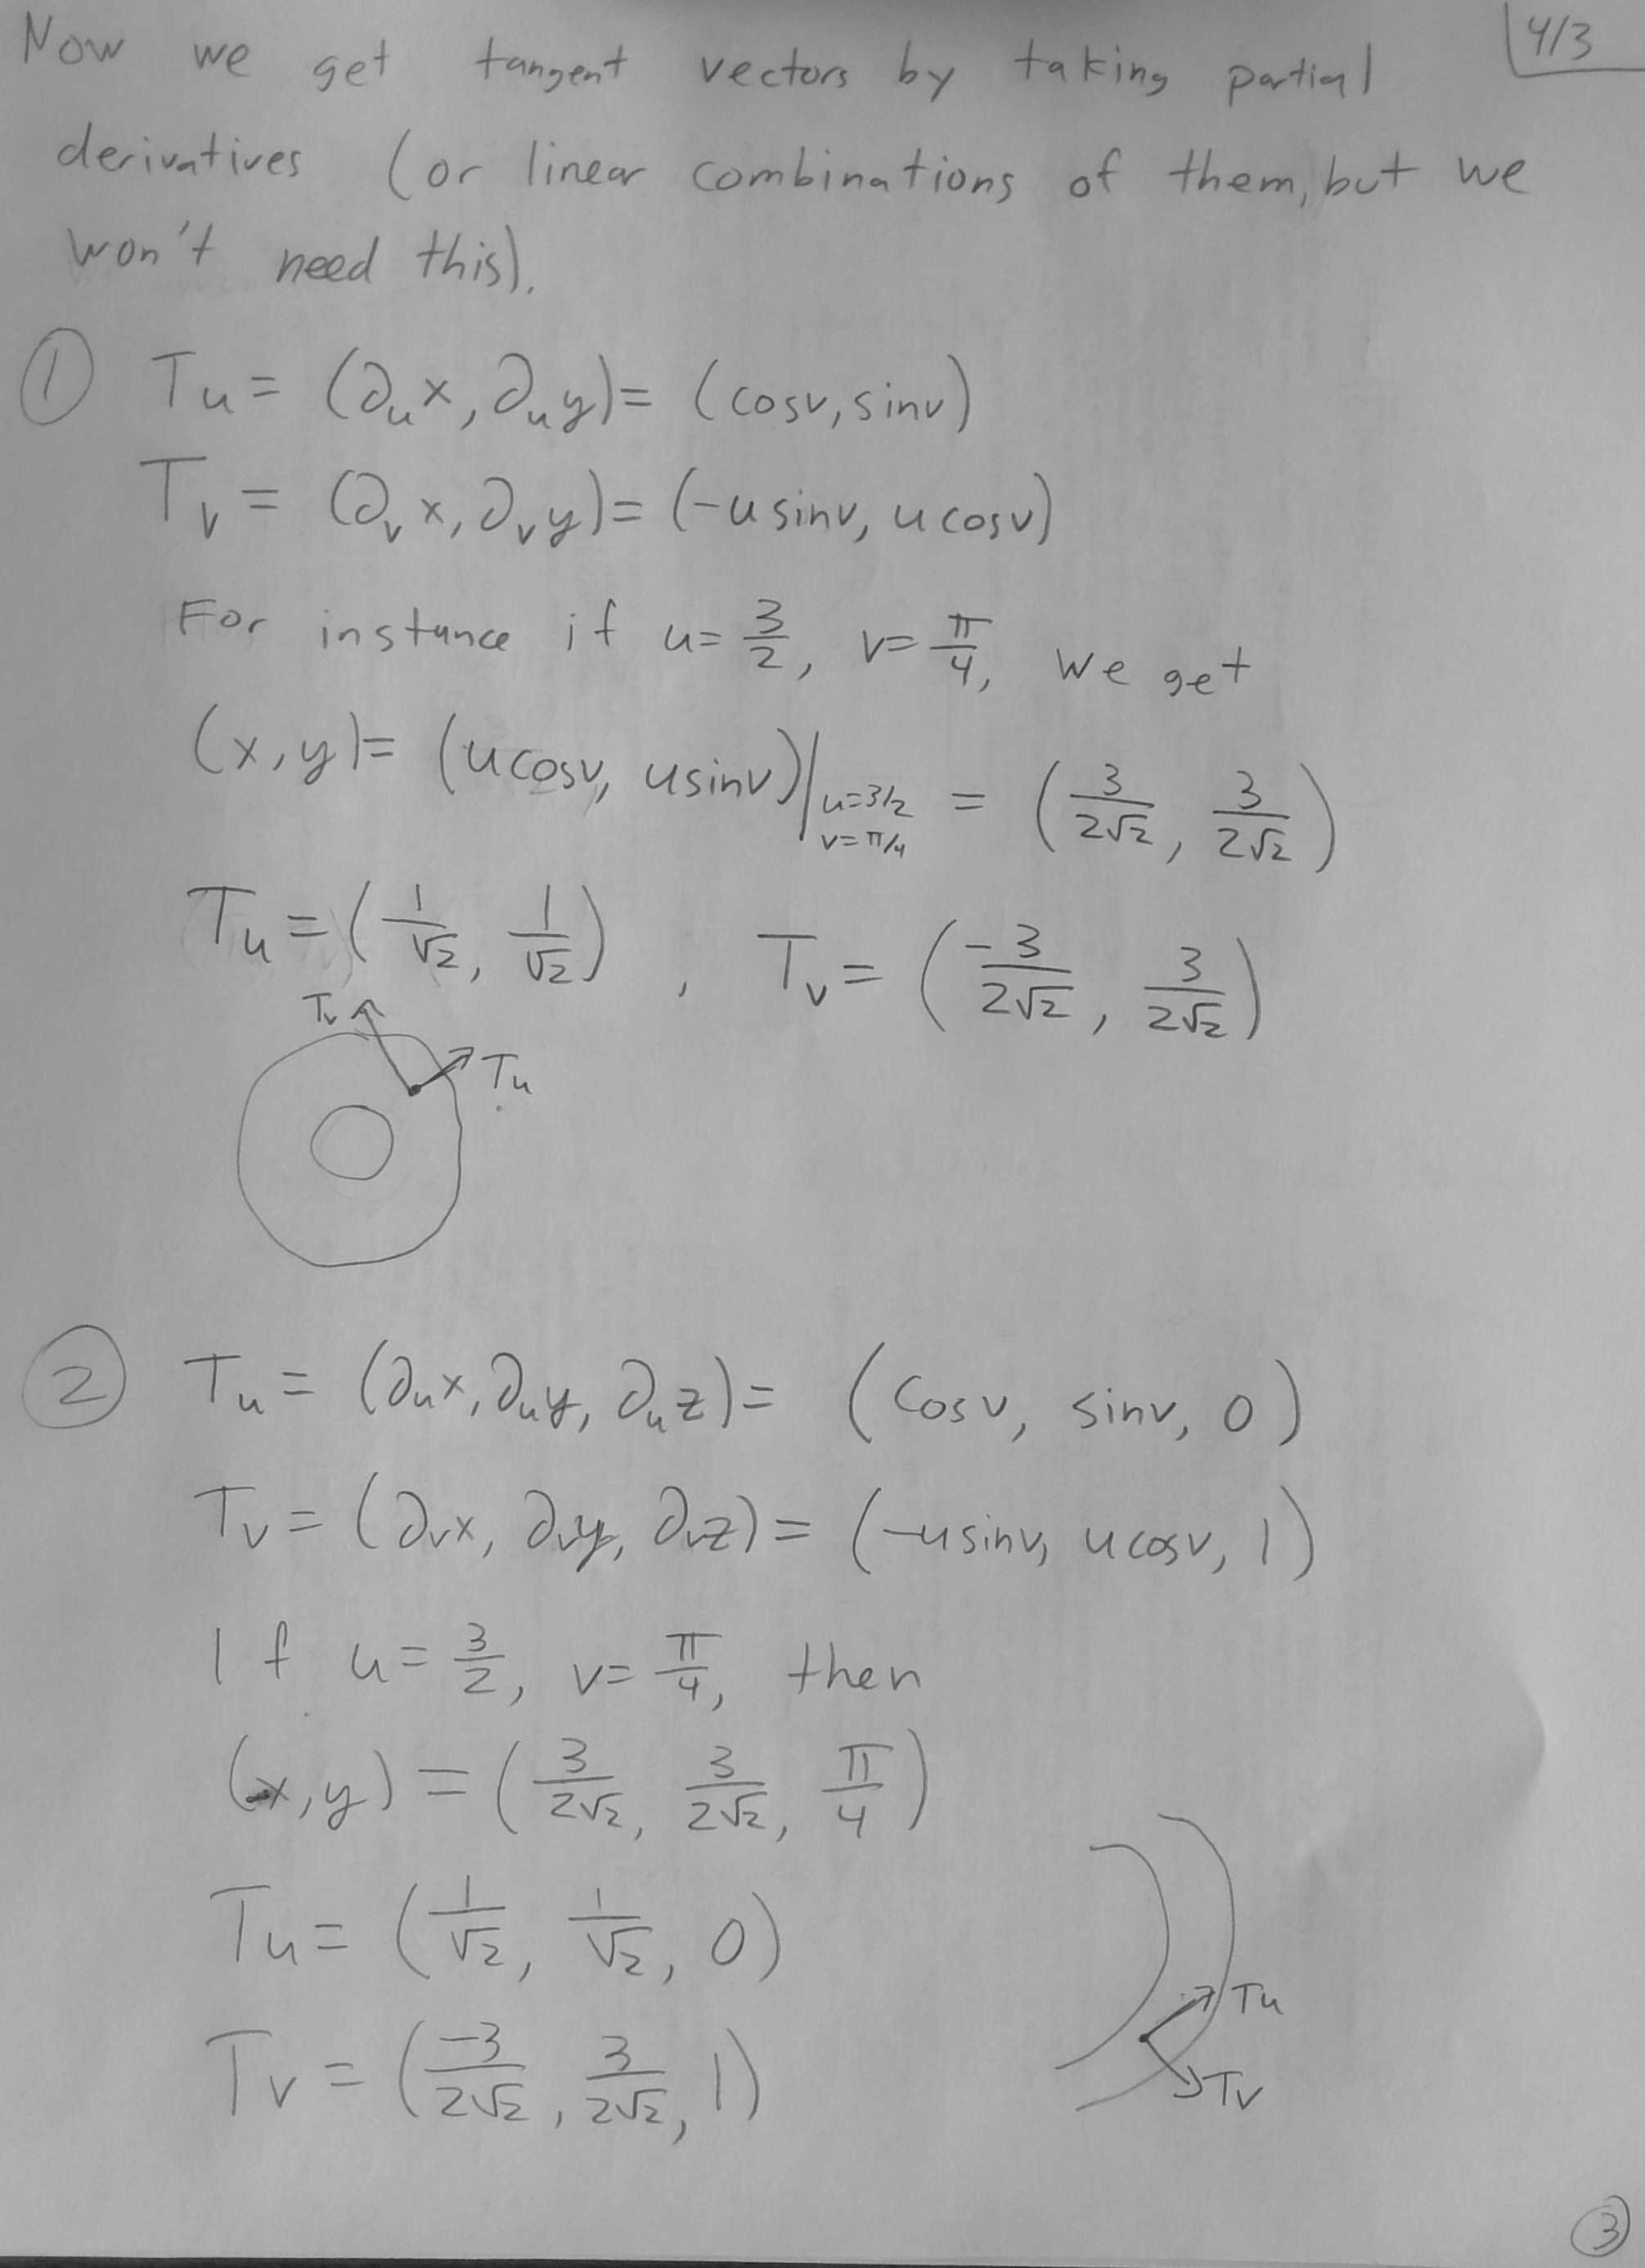 4/3
Now we get tangent vectors by taking partial
derivatives (or linear combinations of them, but we
won't need this).
① Tu = (∂u x, ∂u y) = (cosv, sinv)
Tv = (∂v x, ∂v y) = (-u sinv, u cosv)
For instance if u = 3/2, v = π/4, we get
(x, y) = (u cosv, u sinv)| u=3/2 v=π/4 = (3/2√2, 3/2√2)
Tu = (1/√2, 1/√2), Tv = (-3/2√2, 3/2√2)
Tv
Tu
② Tu = (∂u x, ∂u y, ∂u z) = (cosv, sinv, 0)
Tv = (∂v x, ∂v y, ∂v z) = (-u sinv, u cosv, 1)
If u = 3/2, v = π/4, then
(x, y) = (3/2√2, 3/2√2, π/4)
Tu = (1/√2, 1/√2, 0)
Tu
Tv = (-3/2√2, 3/2√2, 1)
Tv
③